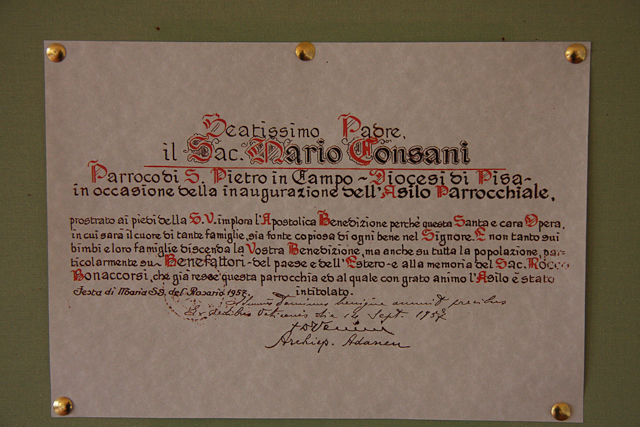 Beatissimo Padre,
il Sac. Mario Consani
Parroco di S. Pietro in Campo - Diocesi di Pisa -
in occasione della inaugurazione dell'Asilo Parrocchiale,
prostrato ai piedi della S.V. implora l'Apostolica Benedizione perchè questa Santa e cara Opera,
in cui sarà il cuore di tante famiglie, sia fonte copiosa di ogni bene nel Signore. E non tanto sui
bimbi e loro famiglie discenda la Vostra Benedizione, ma anche su tutta la popolazione, par-
ticolarmente su - Benefattori - del paese e dell'Estero - e alla memoria del Sac. Rocco
Bonaccorsi, che già resse questa parrocchia ed al quale con grato animo l'Asilo è stato
Festa di Maria SS. del Rosario 1957. intitolato.
Dominus benigne annuit precibus
Ex Aedibus Vaticanis die 14 Sept. 1957
Archiep. Adanen